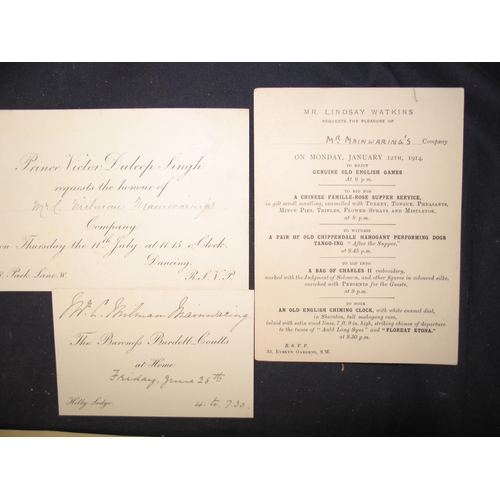 Prince Victor Duleep Singh
requests the honour of
Mr C. Milman Mainwaring's
Company
on Thursday the 11th July at 11.15 o'Clock
Dancing.
Park Lane. W. R.S.V.P.
Mr C. Milman Mainwaring
The Baroness Burdett-Coutts
at Home
Friday, June 28th
Holly Lodge. 4. to 7.30
MR. LINDSAY WATKINS
REQUESTS THE PLEASURE OF
MR MAINWARING'S Company
ON MONDAY, JANUARY 12TH, 1914.
TO ENJOY
GENUINE OLD ENGLISH GAMES
At 6 p.m.
TO BID FOR
A CHINESE FAMILLE-ROSE SUPPER SERVICE,
in gilt scroll moulding, enamelled with TURKEY, TONGUE, PHEASANTS,
MINCE PIES, TRIFLES, FLOWER-SPRAYS AND MISTLETOE,
at 8 p.m.
TO WITNESS
A PAIR OF OLD CHIPPENDALE MAHOGANY PERFORMING DOGS
TANGO-ING "After the Supper,"
at 8.45 p.m.
TO DIP INTO
A BAG OF CHARLES II embroidery,
worked with the Judgment of Solomon, and other figures in coloured silks,
enriched with PRESENTS for the Guests,
at 9 p.m.
TO HEAR
AN OLD ENGLISH CHIMING CLOCK, with white enamel dial,
in Sheraton, tall mahogany case,
inlaid with satin wood lines, 7 ft. 9 in. high, striking chimes of departure
to the tunes of "Auld Lang Syne" and "FLOREAT ETONA."
at 9.30 p.m.
R.S.V.P.
EVELYN GARDENS, S.W.